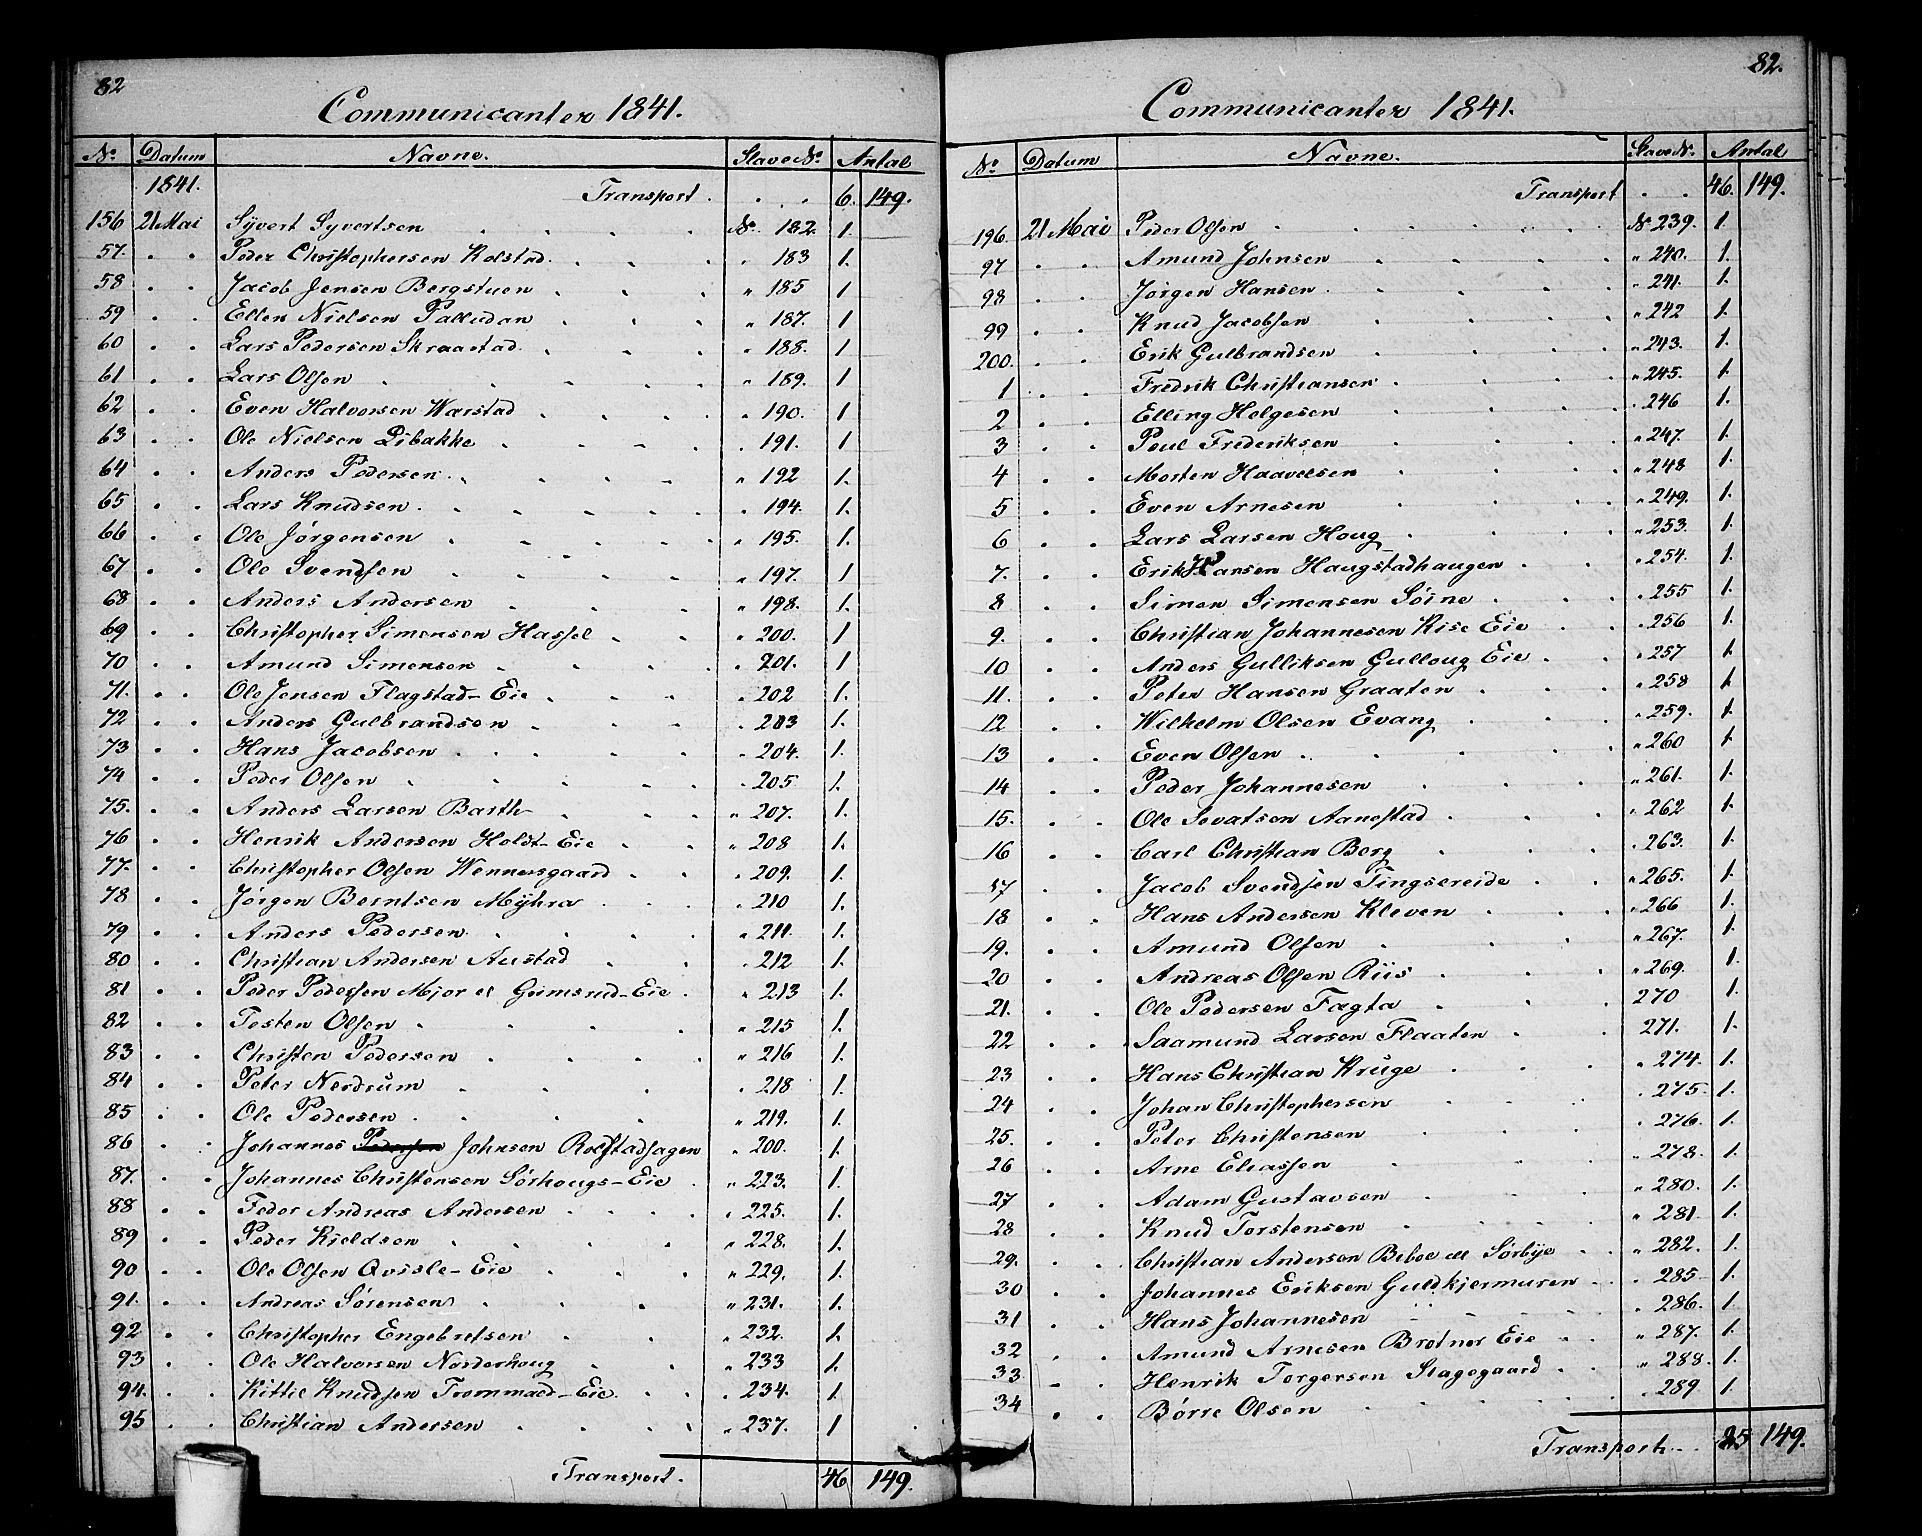 82
Communicanter 1841.
No. Datum Navne. Slave No. Antal
1841. Transport . . . 6. 149.
156 21 Mai Syvert Syvertsen No. 182. 1.
57. Peder Christophersen Rolstad. 183 1.
58 Jacob Jensen Bergstuen " 185 1
59 Ellen Nielsen Palludan " 187. 1
60 Lars Pedersen Skraastad " 188. 1
61 Lars Olsen " 189. 1
62 Even Halvorsen Warstad " 190. 1
63 Ole Nielsen Libakke 191. 1
64 Anders Pedersen " 192 1.
65 Lars Knudsen " 194. 1.
66 Ole Jørgensen " 195. 1.
67 Ole Svendsen " 197. 1
68 Anders Andersen " 198. 1.
69 Christopher Simensen Hassel " 200. 1
70 Amund Simensen " 201. 1
71. Ole Jensen Flagstad-Eie " 202 1.
72 Anders Gulbrandsen " 203 1.
73 Hans Jacobsen " 204. 1.
74 Peder Olsen " 205 1.
75. Anders Larsen Barth " 207. 1.
76 Henrik Andersen Holst-Eie " 208 1.
77. Christopher Olsen Wennersgaard " 209. 1.
78 Jørgen Berntsen Myhra " 210 1.
79 Anders Pedersen " 211. 1.
80 Christian Andersen Austad 212 1.
81 Peder Pedersen Mjor el Grimsrud-Eie " 213 1.
82 Tosten Olsen " 215 1.
83 Christen Pedersen " 216 1.
84 Peter Nerdrum " 218 1.
85 Ole Pedersen " 219. 1.
86 Johannes Pedersen Johnsen Rolstadsagen " 200. 1.
87. Johannes Christensen Sørhougs-Eie " 223. 1.
88 Feder Andreas Andersen " 225. 1.
89 Peder Kieldsen " 228. 1.
90 Ole Olsen Qvisle-Eie " 229. 1.
91. Andreas Sørensen " 231. 1.
92 Christopher Engebretsen " 232. 1.
93 Ole Halvorsen Norderhoug " 233 1.
94. Kittil Knudsen Trommald-Eie " 234. 1.
95 Christian Andersen " 237. 1
Transport. 46 149.
82.
Communicanter 1841.
No. Datum Navne. Slave No. Antal
Transport . . 46. 149.
196. 21 Mai Peder Olsen No 239. 1.
97 Amund Johnsen " 240. 1.
98 Jørgen Hansen " 241. 1.
99 Knud Jacobsen " 242 1.
200. Erik Gulbrandsen " 243. 1.
1 Fredrik Christiansen " 245. 1.
2 Elling Helgesen 246 1.
3 Poul Frideriksen " 247. 1.
4 Morten Haavelsen " 248 1.
5 Even Arnesen " 249. 1.
6 Lars Larsen Houg " 253. 1.
7. Erik Hansen Haugstadhaugen " 254. 1.
8 Simen Simensen Søine " 255 1.
9. Christian Johannesen Rise Eie " 256 1.
10 Anders Gulliksen Gulloug Eie " 257 1.
11. Peter Hansen Graaten " 258 1.
12 Wilhelm Olsen Evang " 259. 1.
13 Even Olsen " 260 1.
14 Peder Johannesen " 261. 1.
15. Ole Sevatsen Aanestad " 262 1.
16 Carl Christian Berg 263. 1.
17 Jacob Svendsen Tingsereide " 265. 1.
18 Hans Andersen Kleven " 266 1.
19. Amund Olsen " 267. 1.
20 Andreas Olsen Riis " 269. 1.
21. Ole Pedersen Fagta 270 1.
22 Saamund Larsen Flaaten 271. 1.
23 Hans Christian Kruge " 274. 1.
24 Johan Christophersen 275. 1.
25. Peter Christensen 276. 1.
26 Arne Eliassen " 278. 1.
27 Adam Gustavsen " 280. 1.
28 Knud Torstensen " 281. 1.
29. Christian Andersen Beboe all Sørbye " 282. 1.
30 Johannes Eriksen Guldkjermuren " 285 1.
31 Hans Johannesen " 286. 1.
32 Amund Arnesen Brotner Eie " 287. 1.
33 Henrik Torgersen Stagegaard " 288. 1.
34 Børre Olsen 289 1.
Transport 85 149.